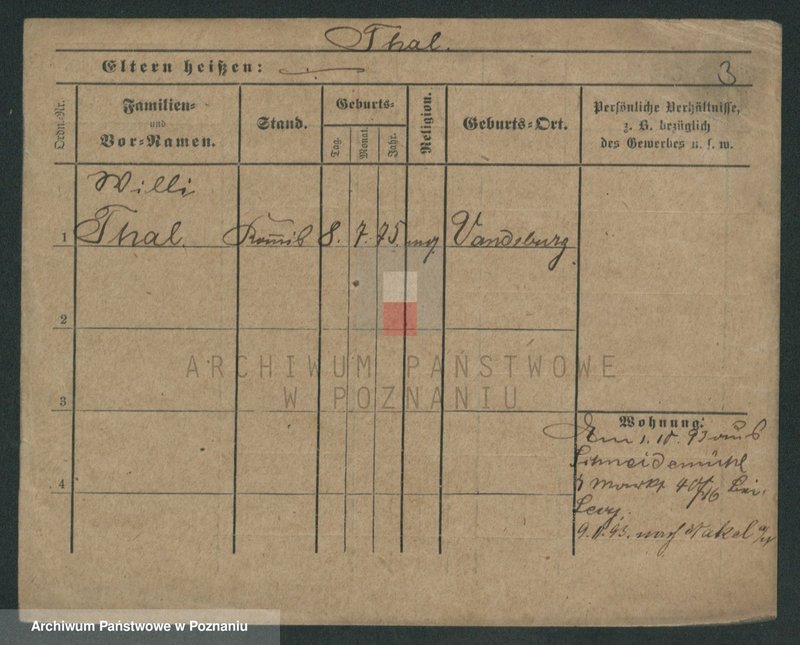 Thal.
Eltern heißen:
3
Ordn.-Nr.
Familien-
und
Vor-Namen.
Stand.
Geburts-
Tag.
Monat.
Jahr.
Religion.
Geburts-Ort.
Persönliche Verhältnisse,
z. B. bezüglich
des Gewerbes u. s. w.
Willi
1 Thal. 8. 7. 75. Vandsburg
2
3
4
Wohnung:
1.10.93 aus
Schneidemühl
Markt bei
Levy.
93. nach Nakel
ARCHIWUM PAŃSTWOWE
W POZNANIU
Archiwum Państwowe w Poznaniu